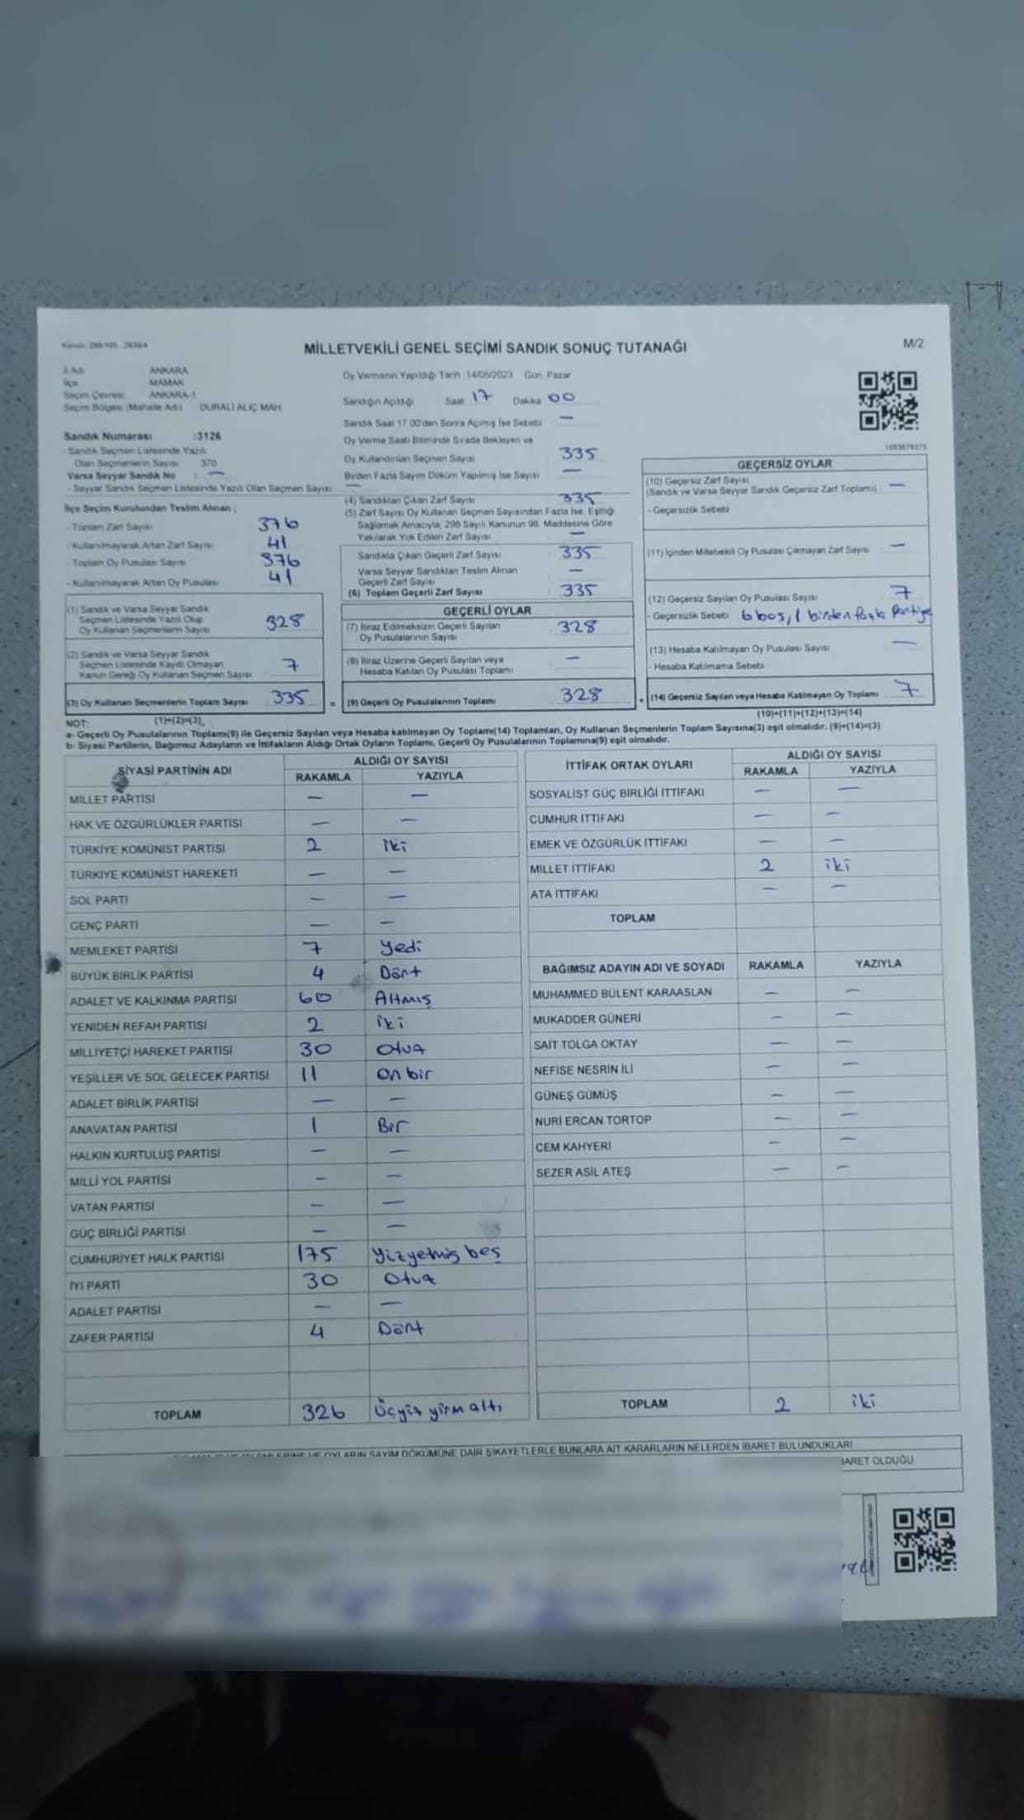 MİLLETVEKİLİ GENEL SEÇİMİ SANDIK SONUÇ TUTANAĞI
M/2
İl Adı ANKARA
İlçe MAMAK
Seçim Çevresi ANKARA-1
Seçim Bölgesi (Mahalle Adı) DURALİ ALIÇ MAH
Sandık Numarası :3126
- Sandık Seçmen Listesinde Yazılı
Olan Seçmenlerin Sayısı 370
Varsa Seyyar Sandık No : —
- Seyyar Sandık Seçmen Listesinde Yazılı Olan Seçmen Sayısı
İlçe Seçim Kurulundan Teslim Alınan ;
- Toplam Zarf Sayısı 376
- Kullanılmayarak Artan Zarf Sayısı 41
- Toplam Oy Pusulası Sayısı 376
- Kullanılmayarak Artan Oy Pusulası 41
(1) Sandık ve Varsa Seyyar Sandık
Seçmen Listesinde Yazılı Olup
Oy Kullanan Seçmenlerin Sayısı 328
(2) Sandık ve Varsa Seyyar Sandık
Seçmen Listesinde Kaydı Olmayan
Kanun Gereği Oy Kullanan Seçmen Sayısı 7
(3) Oy Kullanan Seçmenlerin Toplam Sayısı 335
Oy Vermenin Yapıldığı Tarih :14/05/2023 Gün: Pazar
Sandığın Açıldığı Saat 17 Dakika 00
Sandık Saat 17:00'den Sonra Açılmış İse Sebebi —
Oy Verme Saati Bitiminde Sırada Bekleyen ve
Oy Kullandırılan Seçmen Sayısı 335
Birden Fazla Sayım Döküm Yapılmış İse Sayısı —
(4) Sandıktan Çıkan Zarf Sayısı 335
(5) Zarf Sayısı Oy Kullanan Seçmen Sayısından Fazla İse, Eşitliği
Sağlamak Amacıyla, 298 Sayılı Kanunun 98. Maddesine Göre
Yakılarak Yok Edilen Zarf Sayısı —
Sandıkta Çıkan Geçerli Zarf Sayısı 335
Varsa Seyyar Sandıktan Teslim Alınan
Geçerli Zarf Sayısı —
(6) Toplam Geçerli Zarf Sayısı 335
GEÇERLİ OYLAR
(7) İtiraz Edilmeksizin Geçerli Sayılan
Oy Pusulalarının Sayısı 328
(8) İtiraz Üzerine Geçerli Sayılan veya
Hesaba Katılan Oy Pusulası Toplamı —
= (9) Geçerli Oy Pusulalarının Toplamı 328
GEÇERSİZ OYLAR
(10) Geçersiz Zarf Sayısı
(Sandık ve Varsa Seyyar Sandık Geçersiz Zarf Toplamı) —
- Geçersizlik Sebebi
(11) İçinden Milletvekili Oy Pusulası Çıkmayan Zarf Sayısı —
(12) Geçersiz Sayılan Oy Pusulası Sayısı 7
- Geçersizlik Sebebi 6 boş, 1 birden fazla partiye
(13) Hesaba Katılmayan Oy Pusulası Sayısı —
- Hesaba Katılmama Sebebi
+ (14) Geçersiz Sayılan veya Hesaba Katılmayan Oy Toplamı 7
NOT: (1)+(2)=(3),
(10)+(11)+(12)+(13)=(14)
a- Geçerli Oy Pusulalarının Toplamı(9) ile Geçersiz Sayılan veya Hesaba katılmayan Oy Toplamı(14) Toplamları, Oy Kullanan Seçmenlerin Toplam Sayısına(3) eşit olmalıdır. (9)+(14)=(3)
b- Siyasi Partilerin, Bağımsız Adayların ve İttifakların Aldığı Ortak Oyların Toplamı, Geçerli Oy Pusulalarının Toplamına(9) eşit olmalıdır.
SİYASİ PARTİNİN ADI ALDIĞI OY SAYISI
RAKAMLA YAZIYLA
MİLLET PARTİSİ — —
HAK VE ÖZGÜRLÜKLER PARTİSİ — —
TÜRKİYE KOMÜNİST PARTİSİ 2 iki
TÜRKİYE KOMÜNİST HAREKETİ — —
SOL PARTİ — —
GENÇ PARTİ — —
MEMLEKET PARTİSİ 7 Yedi
BÜYÜK BİRLİK PARTİSİ 4 Dört
ADALET VE KALKINMA PARTİSİ 60 Altmış
YENİDEN REFAH PARTİSİ 2 iki
MİLLİYETÇİ HAREKET PARTİSİ 30 Otuz
YEŞİLLER VE SOL GELECEK PARTİSİ 11 On bir
ADALET BİRLİK PARTİSİ — —
ANAVATAN PARTİSİ 1 Bir
HALKIN KURTULUŞ PARTİSİ — —
MİLLİ YOL PARTİSİ — —
VATAN PARTİSİ — —
GÜÇ BİRLİĞİ PARTİSİ — —
CUMHURİYET HALK PARTİSİ 175 Yüzyetmiş beş
İYİ PARTİ 30 Otuz
ADALET PARTİSİ — —
ZAFER PARTİSİ 4 Dört
TOPLAM 326 Üçyüz yirm altı
İTTİFAK ORTAK OYLARI ALDIĞI OY SAYISI
RAKAMLA YAZIYLA
SOSYALİST GÜÇ BİRLİĞİ İTTİFAKI — —
CUMHUR İTTİFAKI — —
EMEK VE ÖZGÜRLÜK İTTİFAKI — —
MİLLET İTTİFAKI 2 iki
ATA İTTİFAKI — —
TOPLAM
BAĞIMSIZ ADAYIN ADI VE SOYADI RAKAMLA YAZIYLA
MUHAMMED BÜLENT KARAASLAN — —
MUKADDER GÜNERİ — —
SAİT TOLGA OKTAY — —
NEFİSE NESRİN İLİ — —
GÜNEŞ GÜMÜŞ — —
NURİ ERCAN TORTOP — —
CEM KAHYERİ — —
SEZER ASİL ATEŞ — —
TOPLAM 2 iki
OYLARIN SAYIM DÖKÜMÜNE DAİR ŞİKAYETLERLE BUNLARA AİT KARARLARIN NELERDEN İBARET BULUNDUKLARI
İBARET OLDUĞU